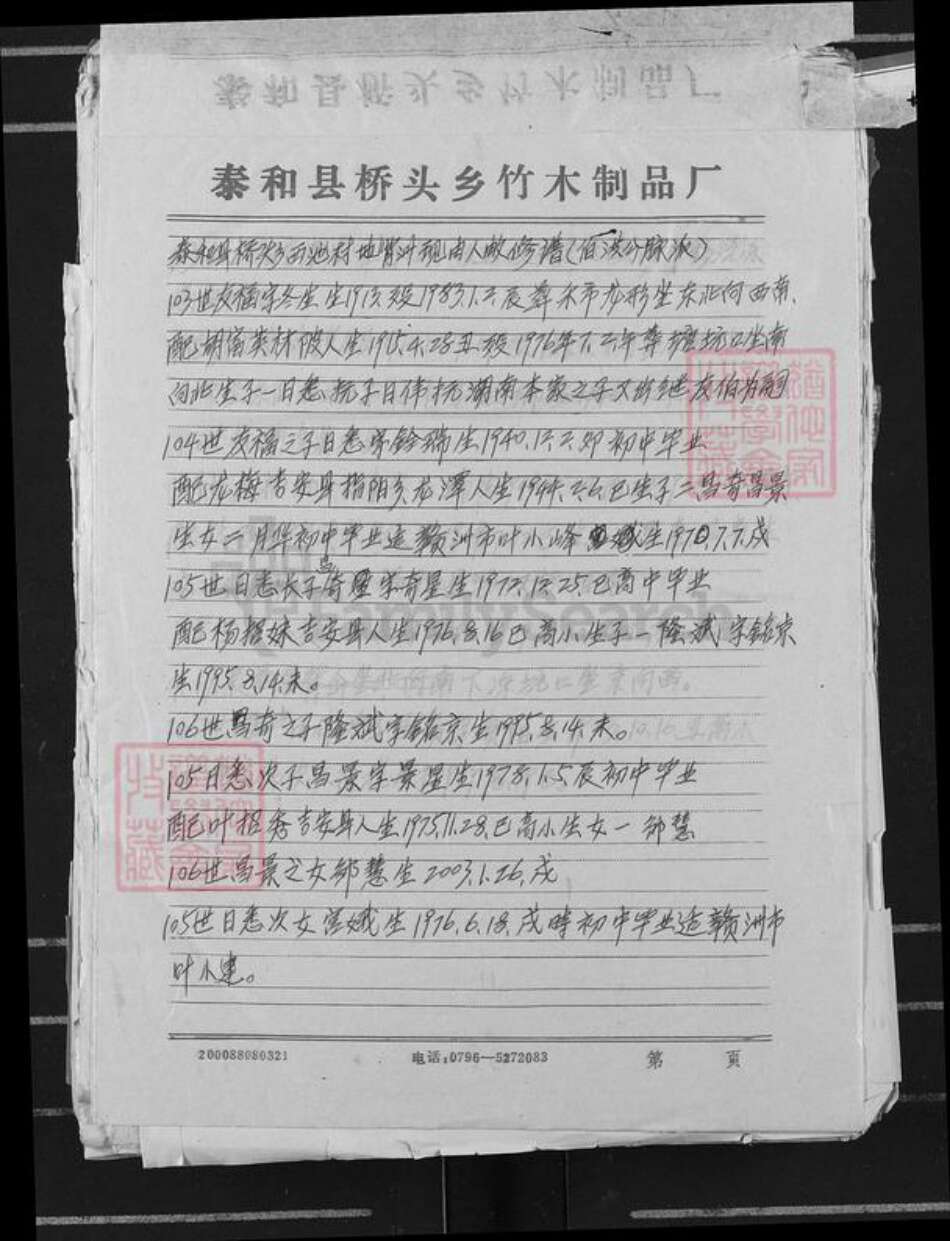 泰和县桥头乡竹木制品厂
泰和县桥头乡西池村地 由人 修谱(伯洪分脉派)
103世友福字冬生生1913. 殁1983.1.2.辰葬禾市龙形坐东北向西南.
配胡富英材陂人生1915.4.28丑殁1976年7.2.午葬 坑口坐南
向北生子一日恚抚子日伟抚湖南本家之子又 继友伯为嗣
104世友福之子日恚字铨瑞生1940.12.2.卯初中毕业
配龙梅吉安县指阳乡龙潭人生1944.2.6.巳生子二昌奇昌景
生女二月华初中毕业适赣洲市叶小峰 生1970.7.7.戌
105世日恚长子昌奇 字奇星生1972.12.25.巳高中毕业
配杨招妹吉安县人生1976.8.16巳高小生子一隆斌字铭京
生1995.8.14.未。
106世昌奇之子隆斌字铭京生1995.8.14.未。
105日恚次子昌景字景星生1978.1.5辰初中毕业
配叶招秀吉安县人生1975.11.28.巳高小生女一邹慧
106世昌景之女邹慧生2003.1.26.戌
105世日恚次女宫娥生1976.6.18.戌時初中毕业适赣洲市
叶小建。
200088080321 电话:0796—5272083 第 页
FamilySearch